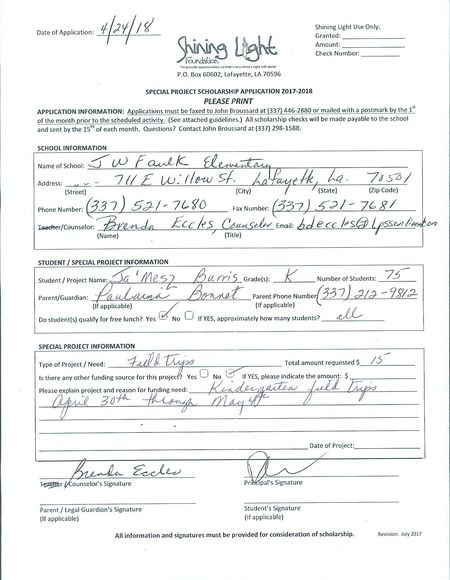 Date of Application: 4/24/18
Shining Light
Foundation
P.O. Box 60602, Lafayette, LA 70596
Shining Light Use Only:
Granted:
Amount:
Check Number:
SPECIAL PROJECT SCHOLARSHIP APPLICATION 2017-2018
PLEASE PRINT
APPLICATION INFORMATION: Applications must be faxed to John Broussard at (337) 446-2880 or mailed with a postmark by the 1st
of the month prior to the scheduled activity. (See attached guidelines.) All scholarship checks will be made payable to the school
and sent by the 15th of each month. Questions? Contact John Broussard at (337) 298-1588.
SCHOOL INFORMATION
Name of School: J W Faulk Elementary
Address: 711 E Willow St. Lafayette, La. 70501
(Street) (City) (State) (Zip Code)
Phone Number: (337) 521-7680 Fax Number: (337) 521-7681
Teacher/Counselor: Brenda Eccles, Counselor Email: bdeccles@
(Name) (Title)
STUDENT / SPECIAL PROJECT INFORMATION
Student / Project Name: Ja'Mesz Burris Grade(s): K Number of Students: 75
Parent/Guardian: Bonnet Parent Phone Number (337) 212-9812
(If applicable) (if applicable)
Do student(s) qualify for free lunch? Yes No If YES, approximately how many students? all
SPECIAL PROJECT INFORMATION
Type of Project / Need: Field Trips Total amount requested $ 15
Is there any other funding source for this project? Yes No If YES, please indicate the amount: $
Please explain project and reason for funding need: Kindergarten field trips
April 30th through May 4th
Date of Project:
Brenda Eccles
Teacher/Counselor's Signature Principal's Signature
Parent / Legal Guardian's Signature Student's Signature
(If applicable) (if applicable)
All information and signatures must be provided for consideration of scholarship. Revision: July 2017